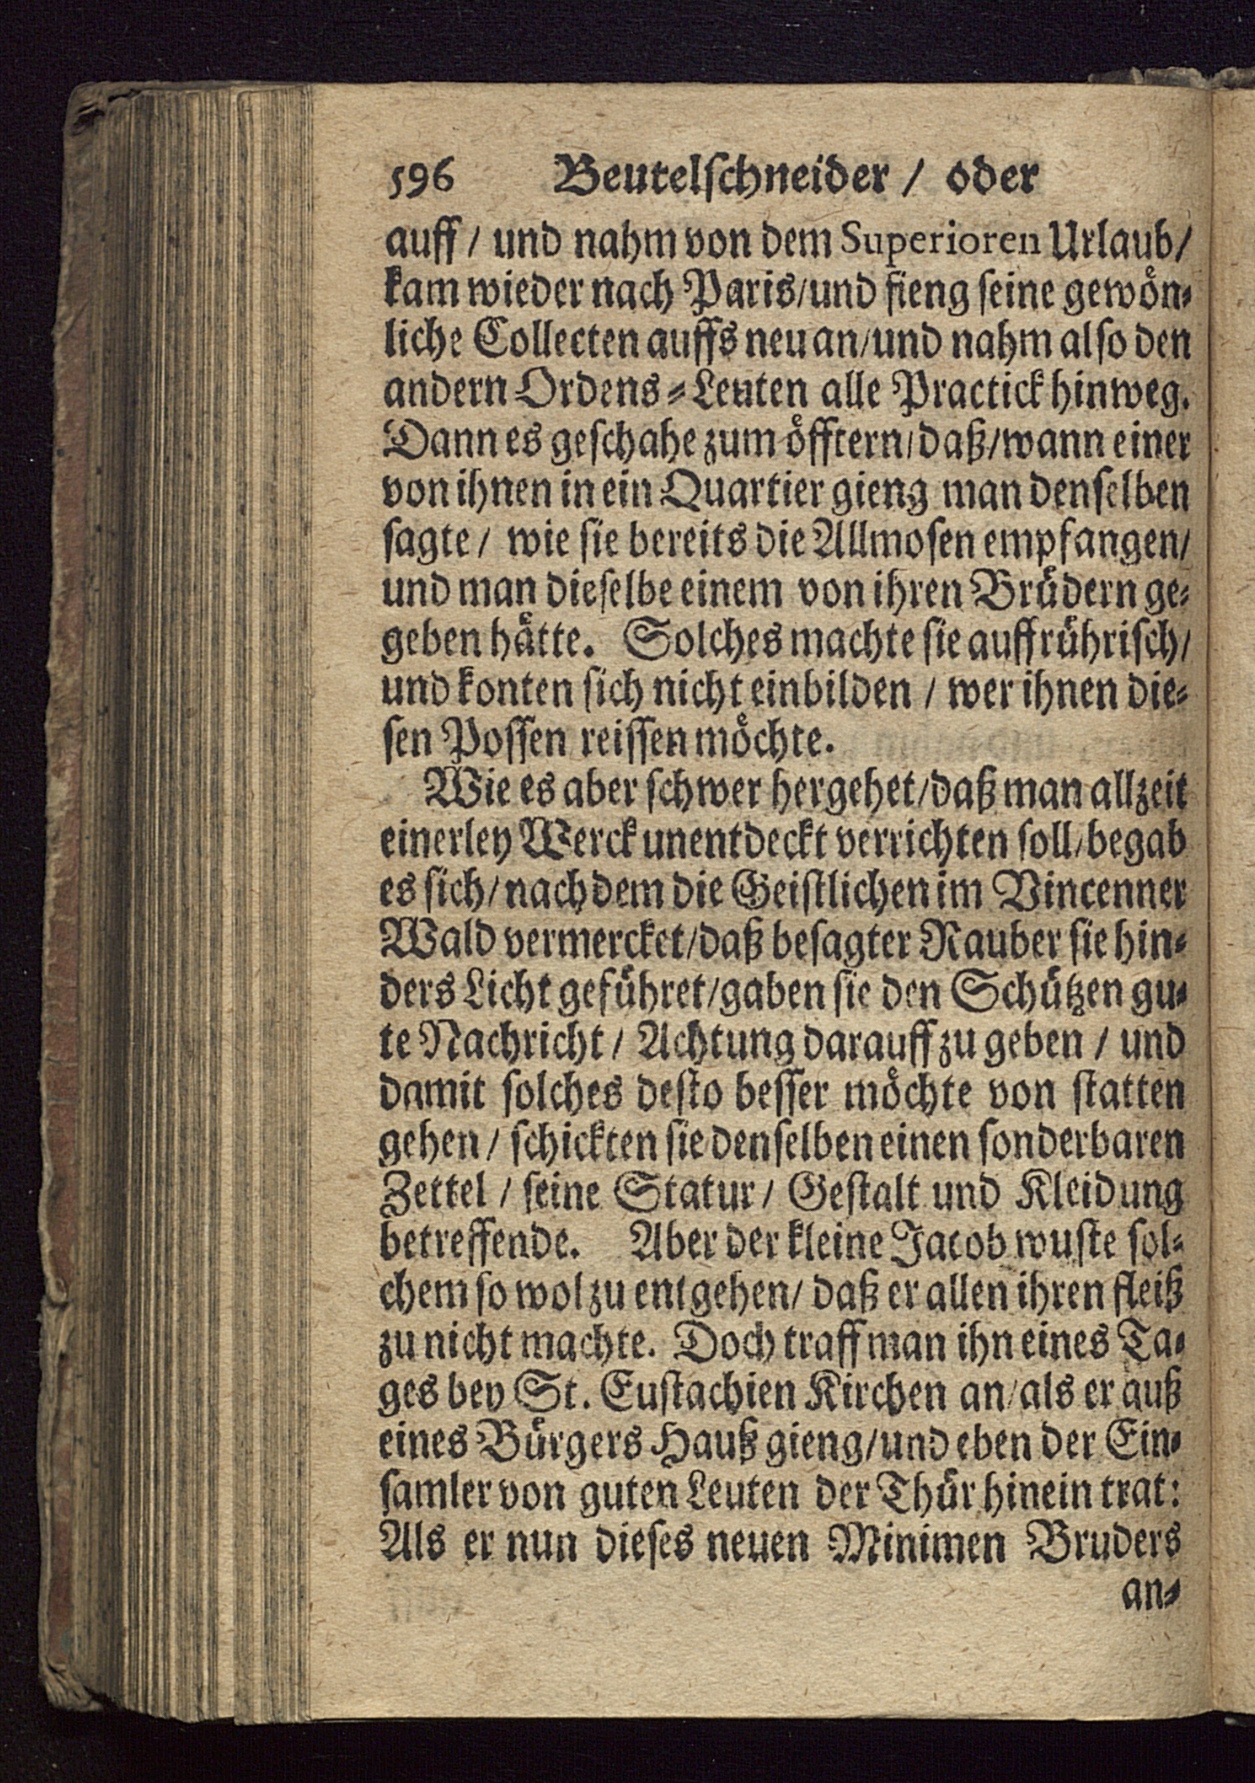 596 Beutelschneider / oder
auff / und nahm von dem Superioren Urlaub/
kam wieder nach Paris/und fieng seine gewön-
liche Collecten auffs neu an/und nahm also den
andern Ordens-Leuten alle Practick hinweg.
Dann es geschahe zum öfftern/daß/wann einer
von ihnen in ein Quartier gieng man denselben
sagte / wie sie bereits die Allmosen empfangen/
und man dieselbe einem von ihren Brüdern ge-
geben hätte. Solches machte sie auffrührisch/
und konten sich nicht einbilden / wer ihnen die-
sen Possen reissen möchte.
Wie es aber schwer hergehet/daß man allzeit
einerley Werck unentdeckt verrichten soll/begab
es sich/nachdem die Geistlichen im Vincenner
Wald vermercket/daß besagter Rauber sie hin-
ders Licht geführet/gaben sie den Schützen gu-
te Nachricht / Achtung darauff zu geben / und
damit solches desto besser möchte von statten
gehen / schickten sie denselben einen sonderbaren
Zettel / seine Statur / Gestalt und Kleidung
betreffende. Aber der kleine Jacob wuste sol-
chem so wol zu entgehen/ daß er allen ihren fleiß
zu nicht machte. Doch traff man ihn eines Ta-
ges bey St. Eustachien Kirchen an/als er auß
eines Bürgers Hauß gieng/und eben der Ein-
samler von guten Leuten der Thür hinein trat:
Als er nun dieses neuen Minimen Bruders
an-